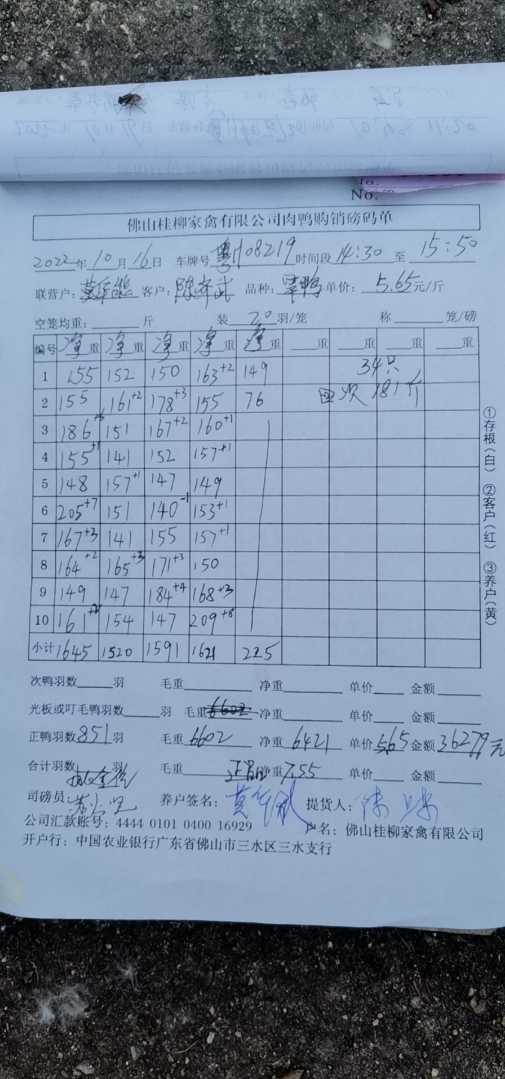 No.
佛山桂柳家禽有限公司肉鸭购销磅码单
2022年10月16日 车牌号 粤H08219 时间段 14:30 至 15:50
联营户: 客户: 品种: 单价: 5.65元/斤
空笼均重: 斤 装 20羽/笼 称 笼/磅
编号 净重 净重 净重 净重 净重 重 重 重 重
1 155 152 150 163+2 149 34只
2 155 161+2 178+3 155 76 回次 181斤
3 186 151 167+2 160+1
4 155 141 152 157+1
5 148 157+1 147 149
6 205+7 151 140-1 153+1
7 167+3 141 155 157+1
8 164+2 165+3 171+3 150
9 149 147 184+4 168+3
10 161 154 147 209+8
小计 1645 1520 1591 1621 225
次鸭羽数 羽 毛重 净重 单价 金额
光板或叮毛鸭羽数 羽 毛重 6602 净重 单价 金额
正鸭羽数 851 羽 毛重 6602 净重 6421 单价 5.65 金额 36279元
合计羽数 羽 毛重 净重 7.55 单价 金额
司磅员: 养户签名: 提货人:
公司汇款账号: 4444 0101 0400 16929 户名: 佛山桂柳家禽有限公司
开户行: 中国农业银行广东省佛山市三水区三水支行
①存根(白) ②客户(红) ③养户(黄)